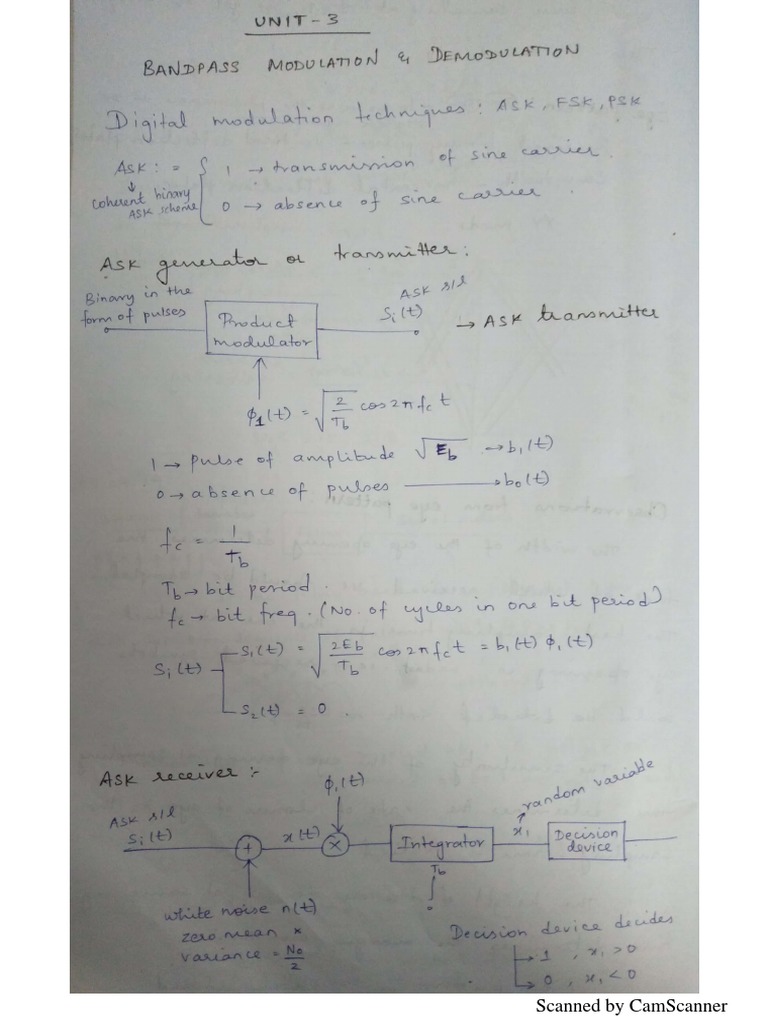 UNIT-3
BANDPASS MODULATION & DEMODULATION
Digital modulation techniques: ASK, FSK, PSK
ASK: = { 1 → transmission of sine carrier.
↓
coherent binary
ASK scheme
0 → absence of sine carrier.
ASK generator or transmitter:
Binary in the
form of pulses
Product
modulator
ASK s/l
Si(t)
→ ASK transmitter
ϕ1(t) = √(2/Tb) cos2πfct
1 → pulse of amplitude √Eb → b1(t)
0 → absence of pulses → b0(t)
fc = 1/Tb
Tb → bit period.
fc → bit freq. (No. of cycles in one bit period)
Si(t)
S1(t) = √(2Eb/Tb) cos2πfct = b1(t) ϕ1(t)
S2(t) = 0.
ASK receiver :-
ϕ1(t)
ASK s/l
Si(t)
+
x(t)
×
Integrator
Tb
∫
0
x1
random variable
Decision
device
white noise n(t)
zero mean ×
variance = No/2
Decision device decides
→ 1, x1 > 0
→ 0, x1 < 0
Scanned by CamScanner